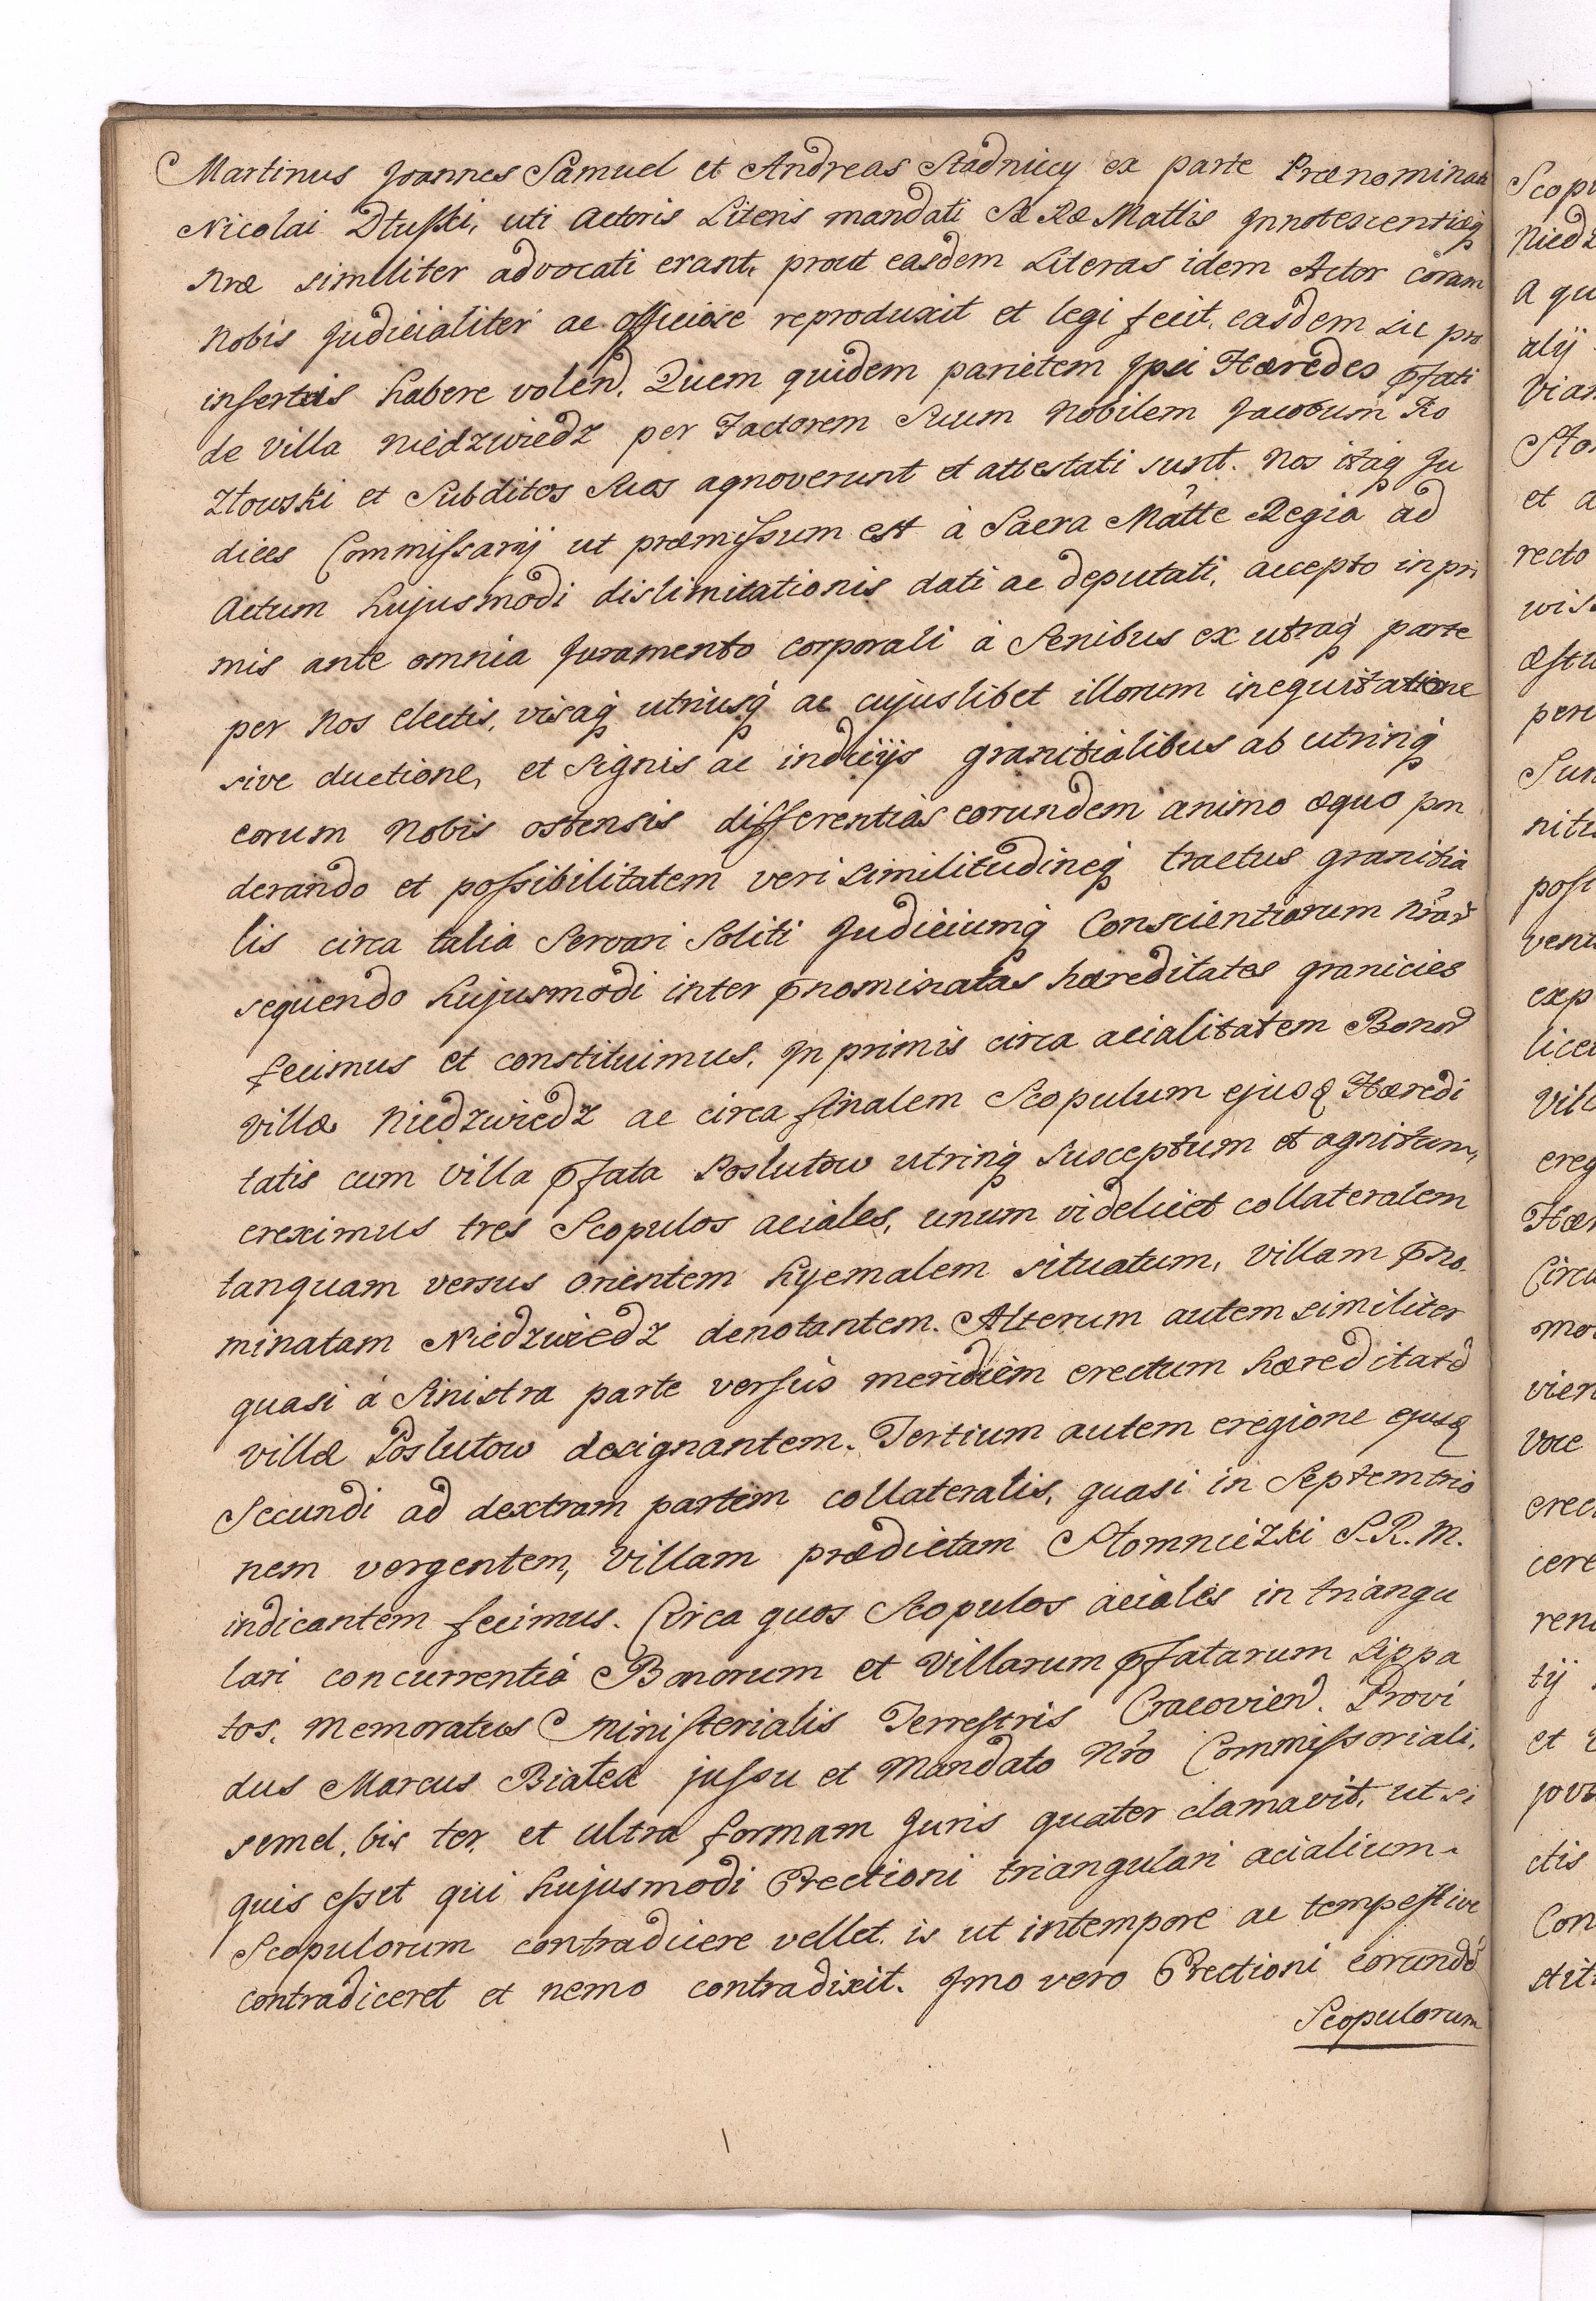 Martinus Joannes Samuel et Andreas Stadniccy ex parte Prænominati
Nicolai Dłuski, uti Actoris Literis mandati Sæ Ræ Mattis Jnnotescentiæq
nræ similiter advocati erant, prout easdem Literas idem Actor coram
nobis Judicialiter ac officiose reproduxit et legi fecit, easdem hic pro
insertis habere volend. Quem quidem parietem Jpsi Hæredes pfati
de Villa Niedzwiedz per Factorem Suum Nobilem Jacobum Ko
złowski et Subditos Suos agnoverunt et attestati sunt. Nos itaq Ju
dices Commissarij ut præmissum est à Sacra Matte Regia ad
Actum hujusmodi dislimitationis dati ac deputati, accepto inpri
mis ante omnia Juramento corporali à Senibus ex utraq parte
per Nos electis, visaq utriusq ac cujuslibet illorum inequitatione
sive ductione, et Signis ac indicijs granitialibus ab utrinq
eorum Nobis ostensis differentias eorundem animo æquo pon
derando et possibilitatem verisimilitudineq tractus granitia
lis circa talia Servari Soliti Judiciumq Conscientiarum nrar
sequendo hujusmodi inter pnominatas hæreditates granicies
fecimus et constituimus. Jn primis circa acialitatem Bonor
Villæ Niedzwiedz ac circa finalem Scopulum ejusd Hæredi
tatis cum Villa pfata Poslutow utrinq Susceptum et agnitum,
ereximus tres Scopulos aciales, unum videlicet collateralem
tanquam versus orientem hyemalem situatum, Villam pno
minatam Niedzwiedz denotantem. Alterum autem similiter
quasi á Sinistra parte versus meridiem erectum hæreditatē
Villæ Poslutow designantem. Tertium autem eregione ejusd
Secundi ad dextram partem collateralis, quasi in Septemtrio
nem vergentem, Villam prædictam Słomniczki S.R.M.
indicantem fecimus. Circa quos Scopulos aciales in triangu
lari concurrentiá Bonorum et Villarum pfatarum Sippa
tos. Memoratus Ministerialis Terrestris Cracovien. Provi
dus Marcus Białek jussu et Mandato Nro Commissoriali,
semel, bis ter, et ultra formam Juris quater clamavit, ut si
quis esset qui hujusmodi Erectioni triangulari acialium
Scopulorum contradicere vellet, is ut intempore ac tempestive
contradiceret et nemo contradixit. Jmo vero Erectioni eorundē
Scopulorum
Scop
Niedz
a qu
alij
Vian
Sto
et a
recto
wis
æstu
peri
Sun
nitu
post
venu
exp
lice
Vill
ereg
Hær
Circ
mo
vien
voce
erec
cere
ren
tij
et
ctis
Con
stit